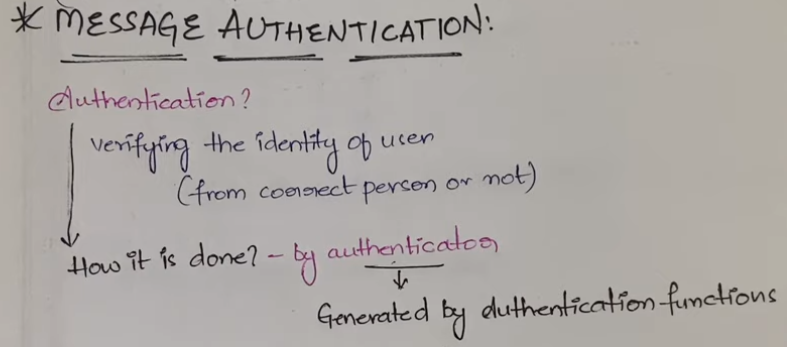 * MESSAGE AUTHENTICATION:
Authentication?
verifying the identity of user
(from correct person or not)
How it is done? - by authenticator
Generated by Authentication functions